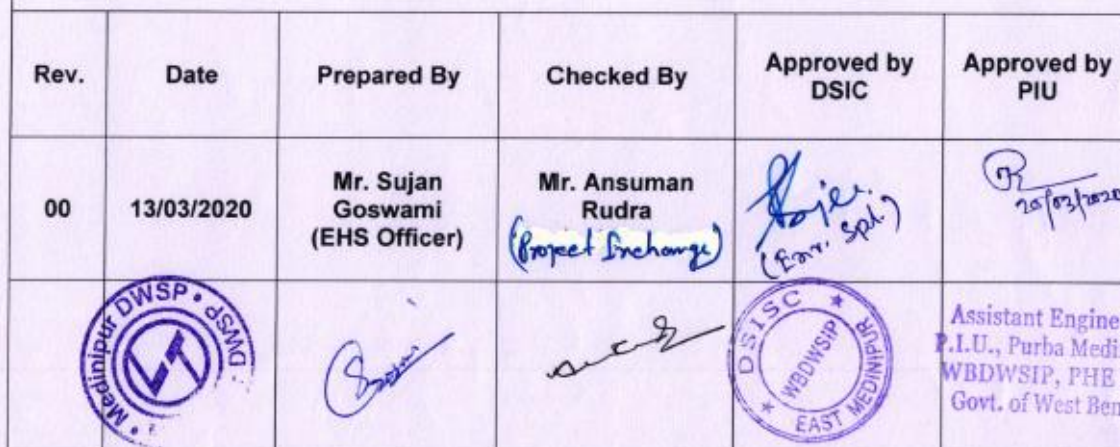 Rev.
Date
Prepared By
Checked By
Approved by
DSIC
Approved by
PIU
00
13/03/2020
Mr. Sujan
Goswami
(EHS Officer)
Mr. Ansuman
Rudra
(Project Incharge)
(Env. Spl.)
20/03/2020
Medinipur DWSP • DWSP •
DSISC
WBDWSIP
EAST MEDINIPUR
Assistant Enginee
P.I.U., Purba Medi
WBDWSIP, PHE
Govt. of West Ben